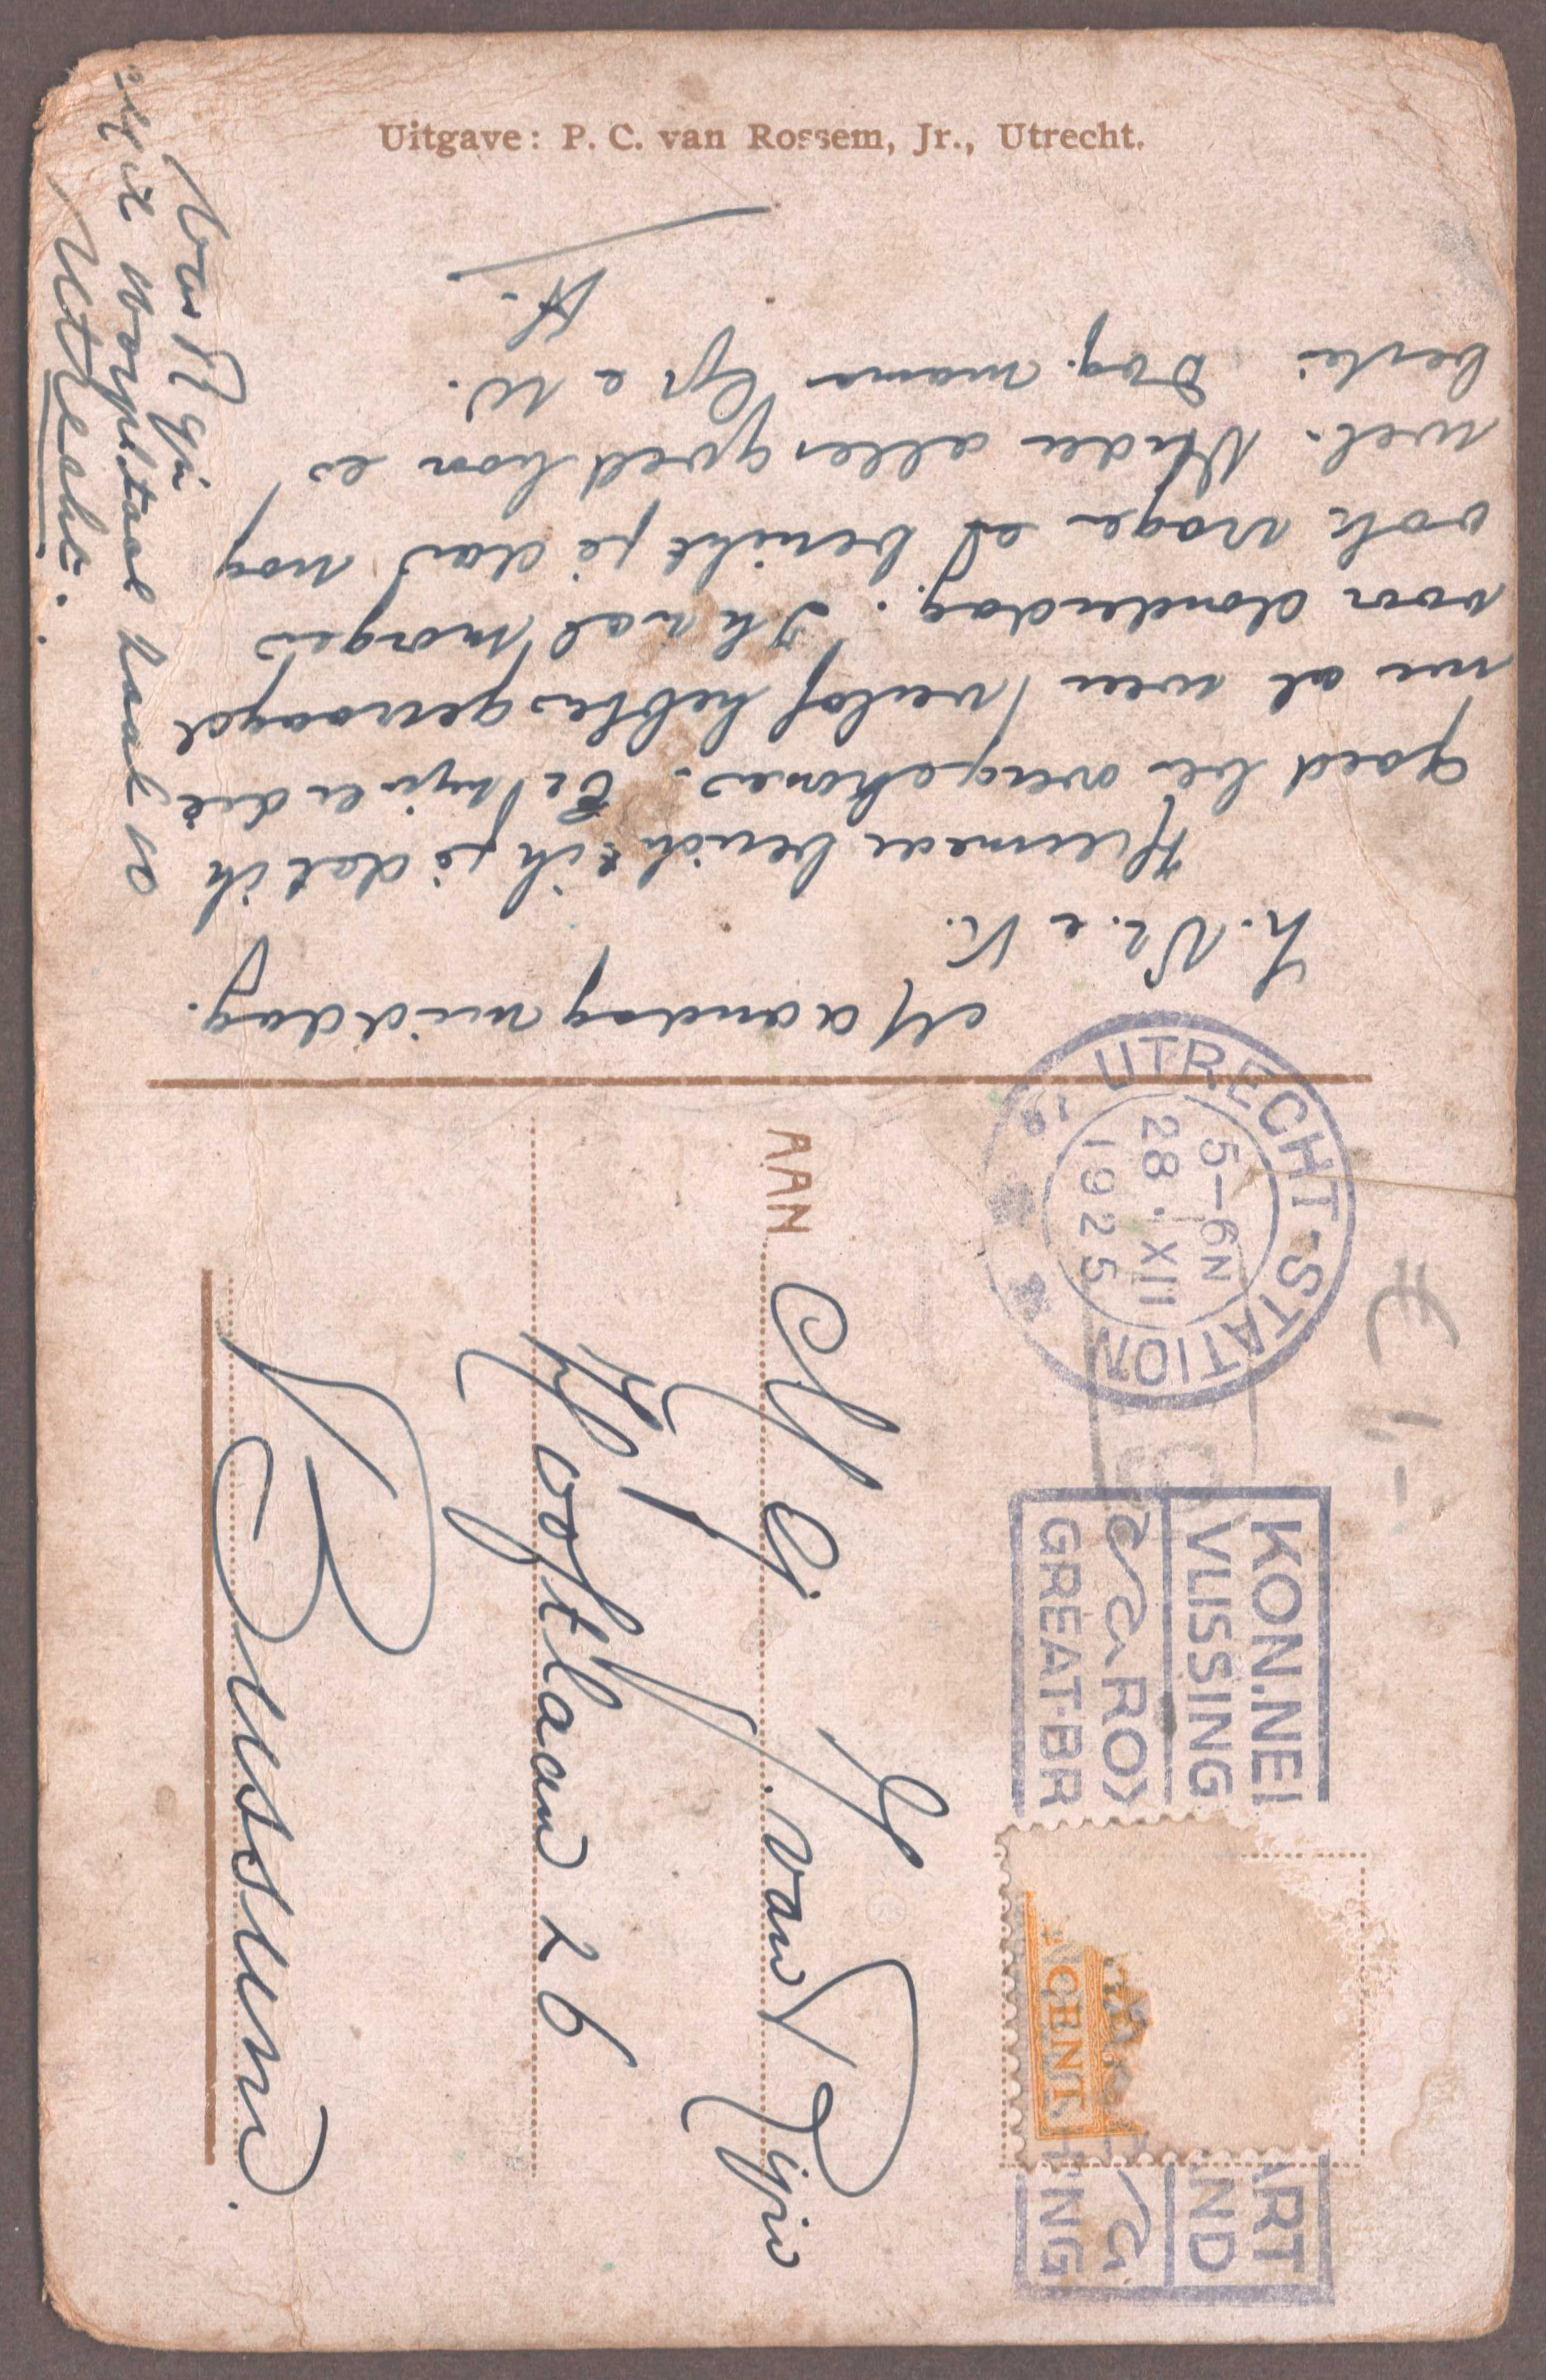 Uitgave: P. C. van Rossem, Jr., Utrecht.
Maandagmiddag.
L. Vr. e K.
Hiermede bericht ik je dat ik
goed ben overgekomen. Er zijn er die
nu al weer verlof hebben gevraagd
voor donderdag. Ik zal morgen
ook vragen en bericht je dan nog
wel. Verder alles goed hoor en
beste Dag. mama
H.
van Rijn
Mil Hospitaal zaal 10
Utrecht.
UTRECHT-STATION
5-6N
28.XII
1925
KON.NE
VLISSING
ROY
GREAT-BR
ART
ND
NG
CENT
AAN
H. van Rijn
Hooftlaan 26
Bussum.